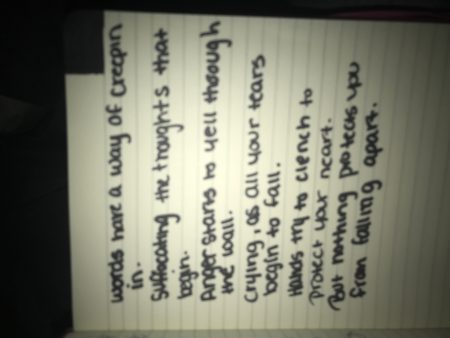 words have a way of creepin
in.
Suffocating the thoughts that
begin.
Anger starts to yell through
the wall.
Crying, as all your tears
begin to fall.
Hands try to clench to
protect your heart.
But nothing protects you
from falling apart.